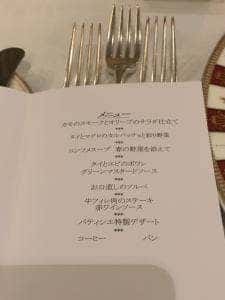 メニュー
カモのスモークとオリーブのサラダ仕立て
***
タイとマグロのカルパッチョと彩り野菜
***
コンソメスープ 春の野菜を添えて
***
タイとエビのポワレ
グリーンマスタードソース
***
お口直しのソルベ
***
牛フィレ肉のステーキ
赤ワインソース
***
パティシエ特製デザート
***
コーヒー パン